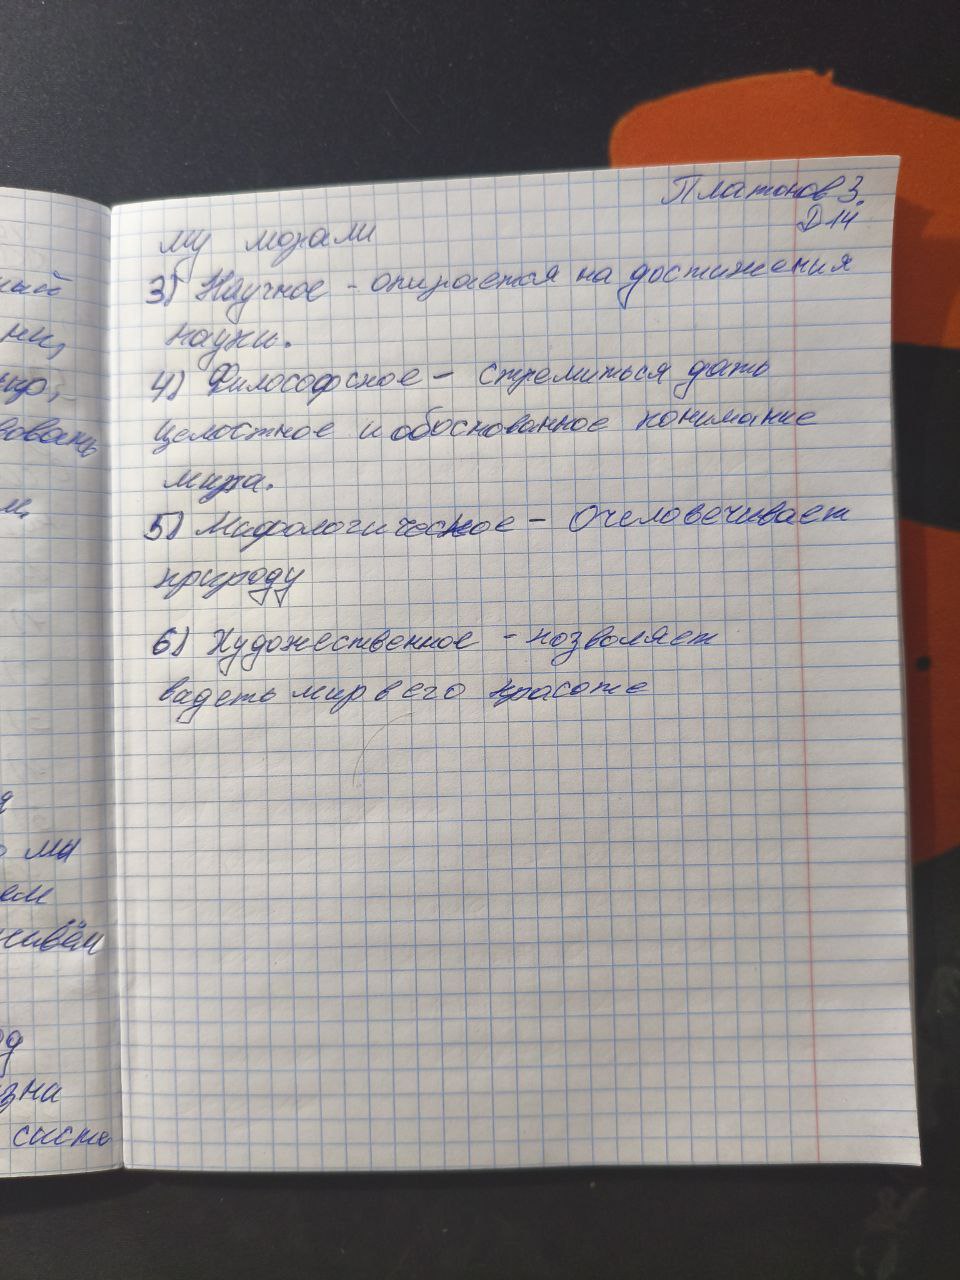 Платонов З.
Д14
му морали
3) Научное - опирается на достижения
науки.
4) Философское - стремиться дать
целостное и обоснованное понимание
мира.
5) Мифологическое - Очеловечивает
природу
6) Художественное - позволяет
видеть мир в его красоте
ный
ми,
овать
м,
я
о мы
ем
живём
зни
систе